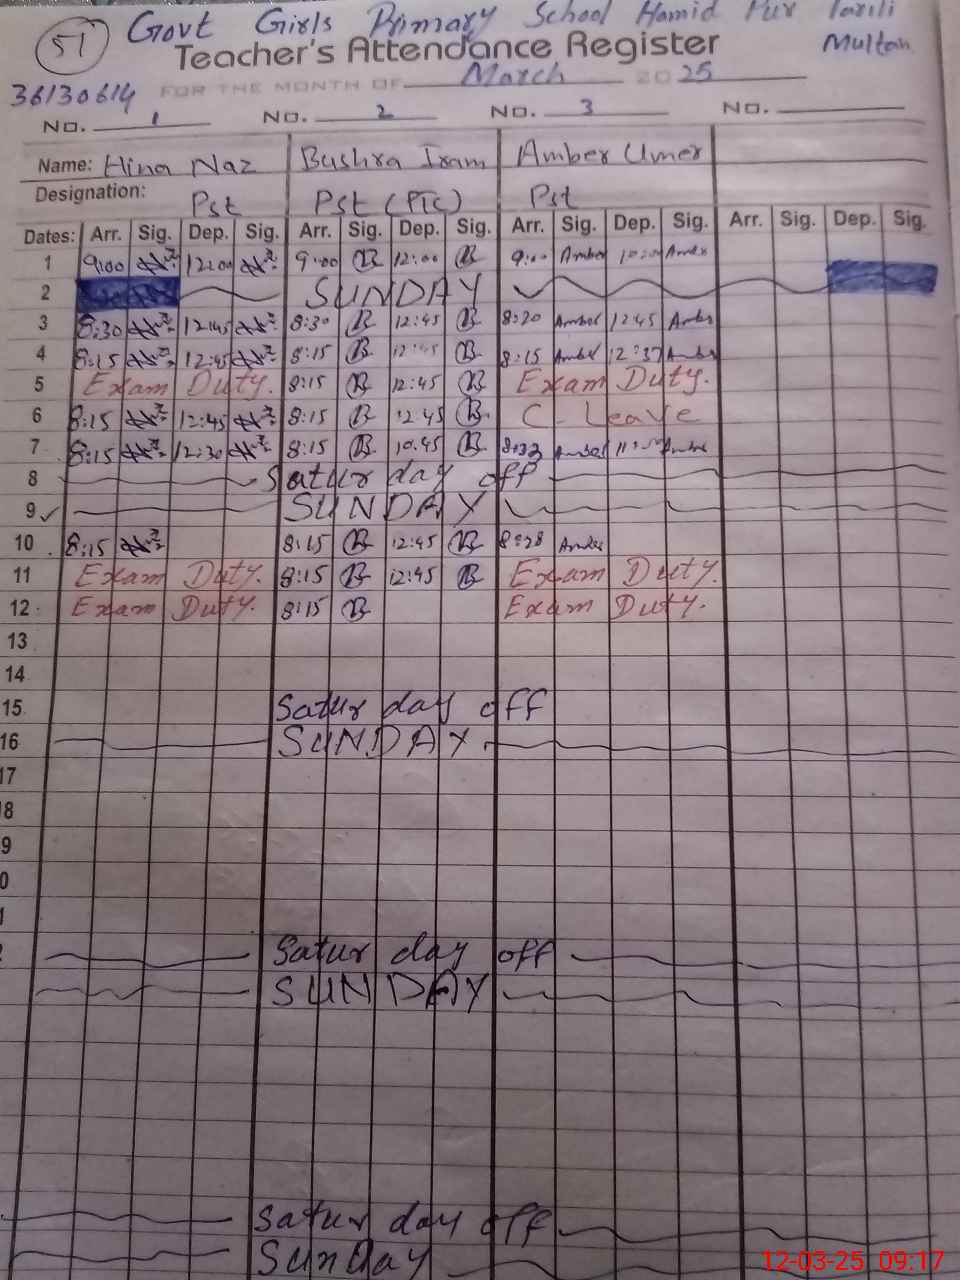 51
Govt Girls Primary School Hamid Pur
Multan
Teacher's Attendance Register
36130614 FOR THE MONTH OF March 2025
No. 1 No. 2 No. 3 No.
Name: Hina Naz Bushra Iram Amber Umer
Designation: Pst Pst (PTC) Pst
Dates: Arr. Sig. Dep. Sig. Arr. Sig. Dep. Sig. Arr. Sig. Dep. Sig. Arr. Sig. Dep. Sig.
1 9:00 12:00 9:00 B 12:00 B 9:00 Amber Amber
2 SUNDAY
3 8:30 12:45 8:30 B 12:45 B 8:30 Amber 12:45 Amber
4 8:15 12:45 8:15 B 12:45 B 8:15 Amber 12:37 Amber
5 Exam Duty. 8:15 B 12:45 B Exam Duty.
6 8:15 12:45 8:15 B 12:45 B C-Leave
7 8:15 12:30 8:15 B 10.45 B Amber Amber
8 Saturday off
9 SUNDAY
10 8:15 8:15 B 12:45 B 8:28 Amber
11 Exam Duty. 8:15 B 12:45 B Exam Duty.
12 Exam Duty. 8:15 B Exam Duty.
13
14
15 Saturday off
16 SUNDAY
17
8
9
0
1
Saturday off
SUNDAY
Saturday off
Sunday
12-03-25 09:17